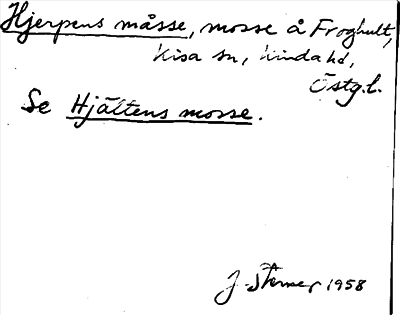 Hjerpens måsse, mosse å Froghult,
Kisa sn, Kinda hd,
Östg.l.
Se Hjältens mosse.
J. Sterner 1958